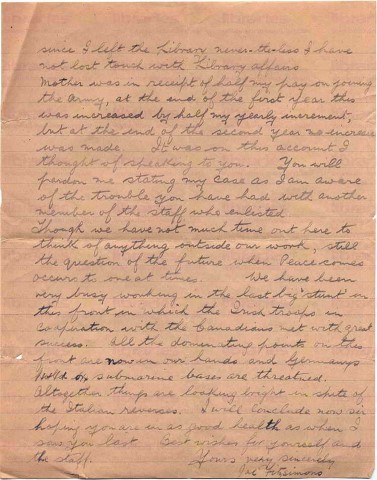 since I left the Library never-the-less I have
not lost touch with Library affairs
Mother was in receipt of half my pay on joining
the Army, at the end of the first year this
was increased by half my yearly increment,
but at the end of the second year no increase
was made It was on this account I
thought of speaking to you. You will
pardon me stating my case as I am aware
of the trouble you have had with another
member of the staff who enlisted
Though we have not much time out here to
think of anything outside our work, still
the question of the future when Peace comes
occurs to one at times. We have been
very busy working in the last big stunt on
this front in which the Irish troops in
with the Canadians met with great
success. All the dominating points on this
front are now in our hands and Germanys
submarine bases are threatned.
Altogether things are looking bright in spite of
the Italian reverses. I will conclude now sir
hoping you are in as good health as when I
saw you last Best wishes for yourself and
the staff. Yours very sincerely
Fitzsimons